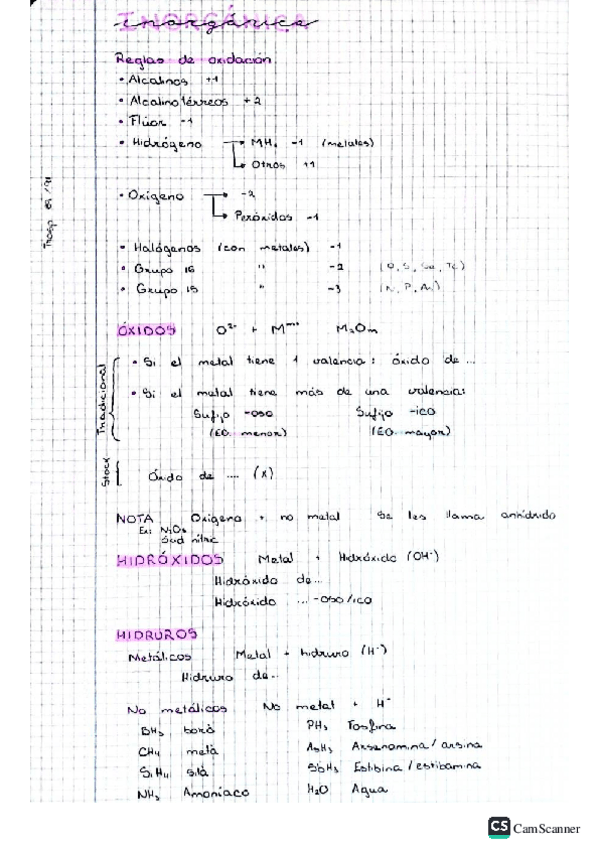 INORGÁNICA
inorgánica
Reglas de oxidación
• Alcalinos +1
• Alcalinotérreos +2
• Flúor -1
• Hidrógeno → MHx -1 (metales)
↳ Otros +1
• Oxígeno → -2
↳ Peróxidos -1
• Halógenos (con metales) -1
• Grupo 16 " -2 (O, S, Se, Te)
• Grupo 15 " -3 (N, P, As)
ÓXIDOS O²⁻ + Mᵐ⁺ M₂Om
Tradicional
• Si el metal tiene 1 valencia: óxido de ...
• Si el metal tiene más de una valencia:
Sufijo -oso Sufijo -ico
(EO. menor) (EO. mayor)
Stock
Óxido de .... (X)
NOTA Oxígeno + no metal Se les llama anhídrido
Ex: N₂O₅
òxid nítric
HIDRÓXIDOS Metal + Hidróxido (OH⁻)
Hidróxido de...
Hidróxido ...-oso/ico
HIDRUROS
Metálicos Metal + hidruro (H⁻)
Hidruro de...
No metálicos No metal + H⁻
BH₃ borà PH₃ Fosfina
CH₄ metà AsH₃ Arsenamina/arsina
SiH₄ silà SbH₃ Estibina/estibamina
NH₃ Amoníaco H₂O Agua
CS CamScanner